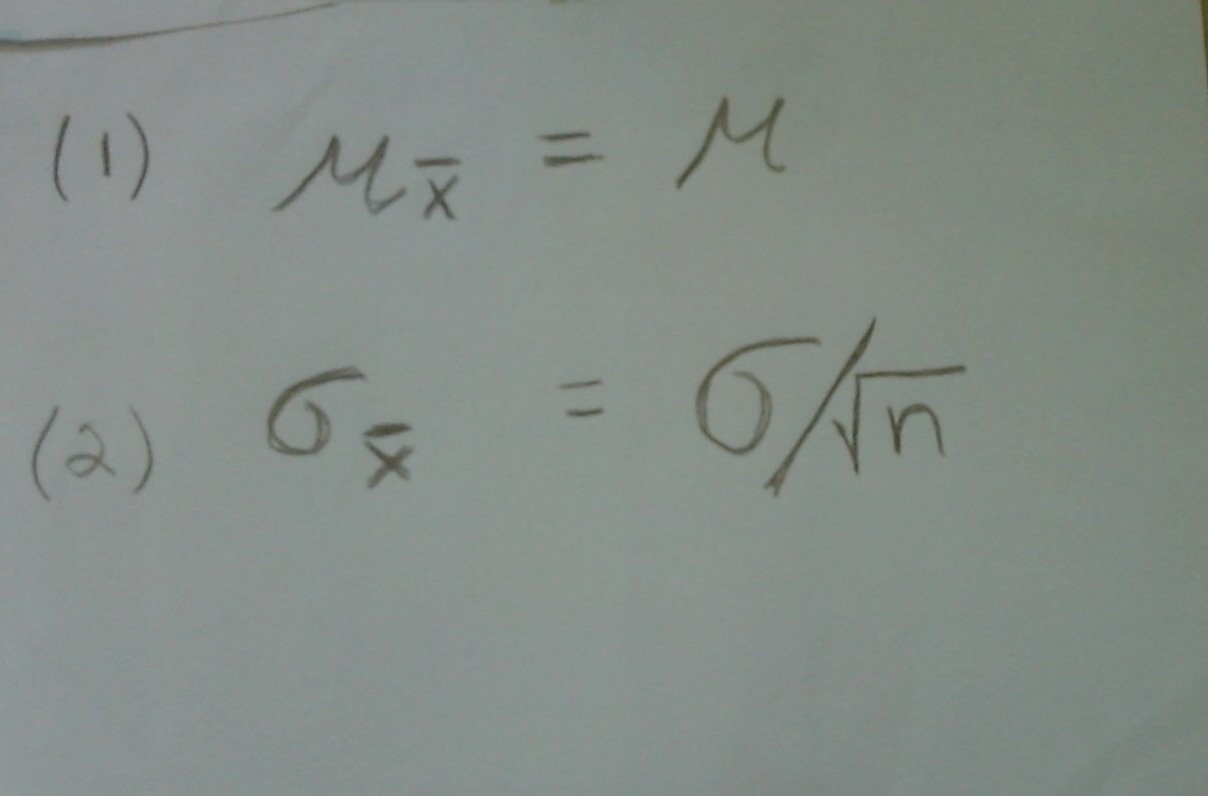 (1) μ_x̄ = μ
(2) σ_x̄ = σ/√n